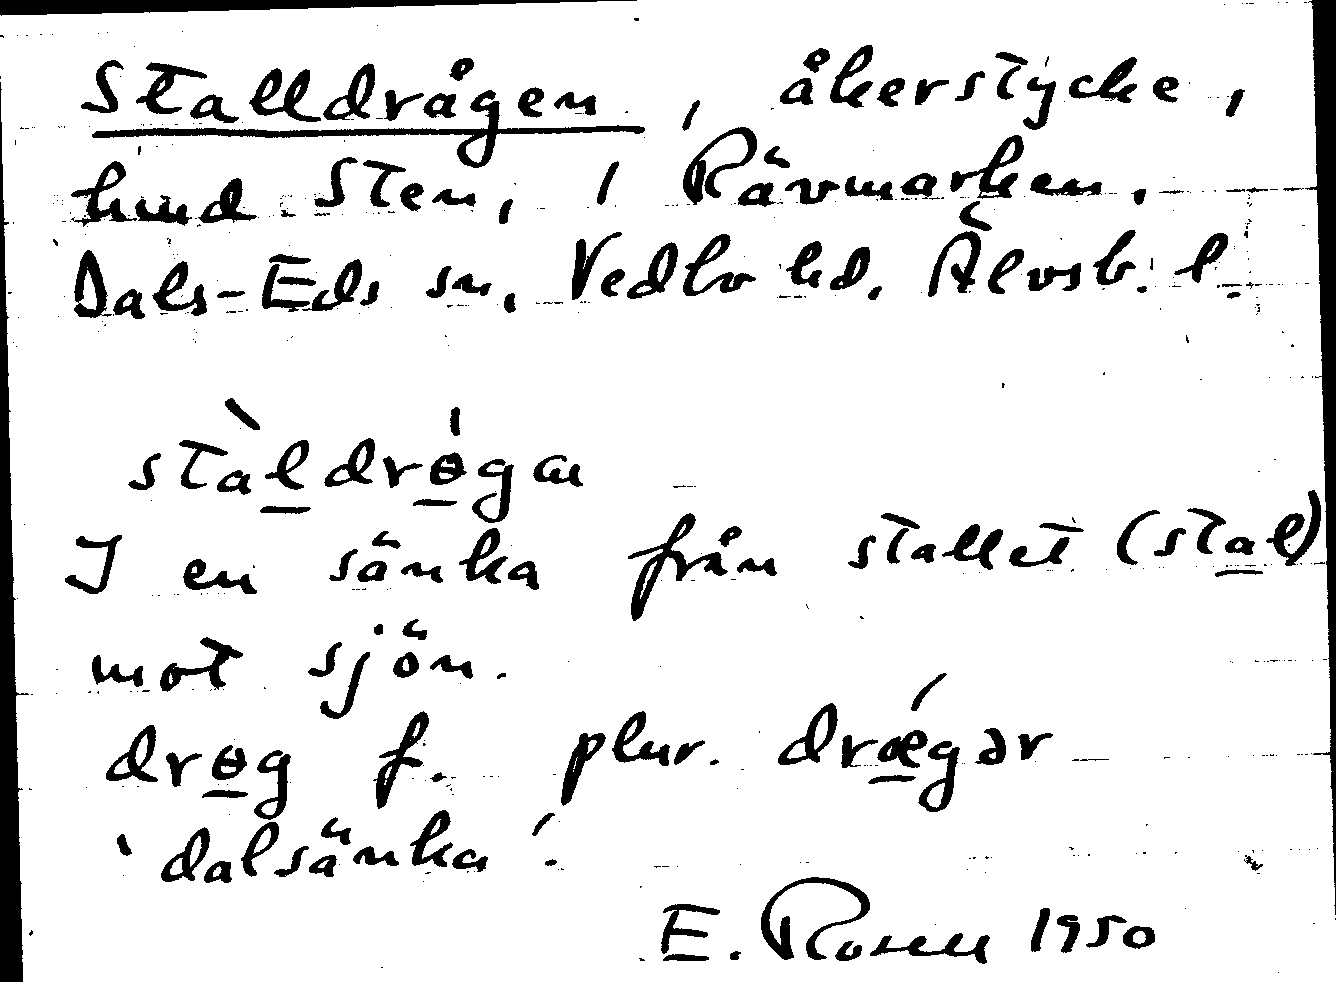 Stalldrågen, åkerstycke,
hmd Sten, 1 Rävmarken.
Dals-Eds sn, Vedbo hd, Älvsb. l.
stàl̲drɵ̲́gæ
I en sänka från stallet (sta̲l)
mot sjön.
drɵ̲g f. plur. drǽ̲gər
'dalsänka'.
E. Rosen 1950